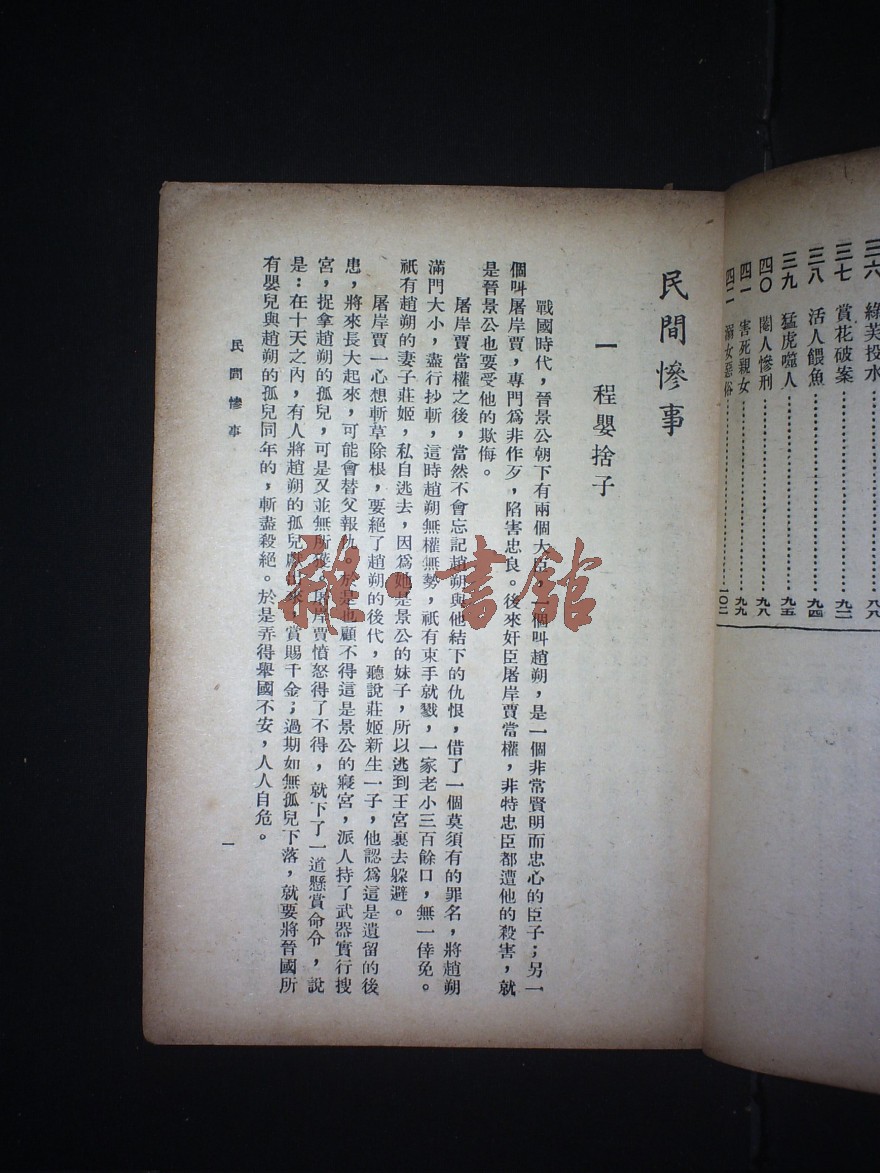 三六 綠芙投水……八八
三七 賞花破案……九二
三八 活人餵魚……九四
三九 猛虎噬人……九五
四〇 閹人慘刑……九八
四一 害死親女……九九
四二 溺女惡俗……一〇二
民間慘事
一 程嬰捨子
戰國時代，晉景公朝下有兩個大臣，一個叫趙朔，是一個非常賢明而忠心的臣子；另一
個叫屠岸賈，專門爲非作歹，陷害忠良。後來奸臣屠岸賈當權，非特忠臣都遭他的殺害，就
是晉景公也要受他的欺侮。
屠岸賈當權之後，當然不會忘記趙朔與他結下的仇恨，借了一個莫須有的罪名，將趙朔
滿門大小，盡行抄斬，這時趙朔無權無勢，祇有束手就戮，一家老小三百餘口，無一倖免。
祇有趙朔的妻子莊姬，私自逃去，因爲她是景公的妹子，所以逃到王宮裏去躲避。
屠岸賈一心想斬草除根，要絕了趙朔的後代，聽說莊姬新生一子，他認爲這是遺留的後
患，將來長大起來，可能會替父報仇。於是也顧不得這是景公的寢宮，派人持了武器實行搜
宮，捉拿趙朔的孤兒，可是又並無所獲，屠岸賈憤怒得了不得，就下了一道懸賞命令，說
是：在十天之內，有人將趙朔的孤兒獻出來，賞賜千金；過期如無孤兒下落，就要將晉國所
有嬰兒與趙朔的孤兒同年的，斬盡殺絕。於是弄得舉國不安，人人自危。
民間慘事
一
雜·書館